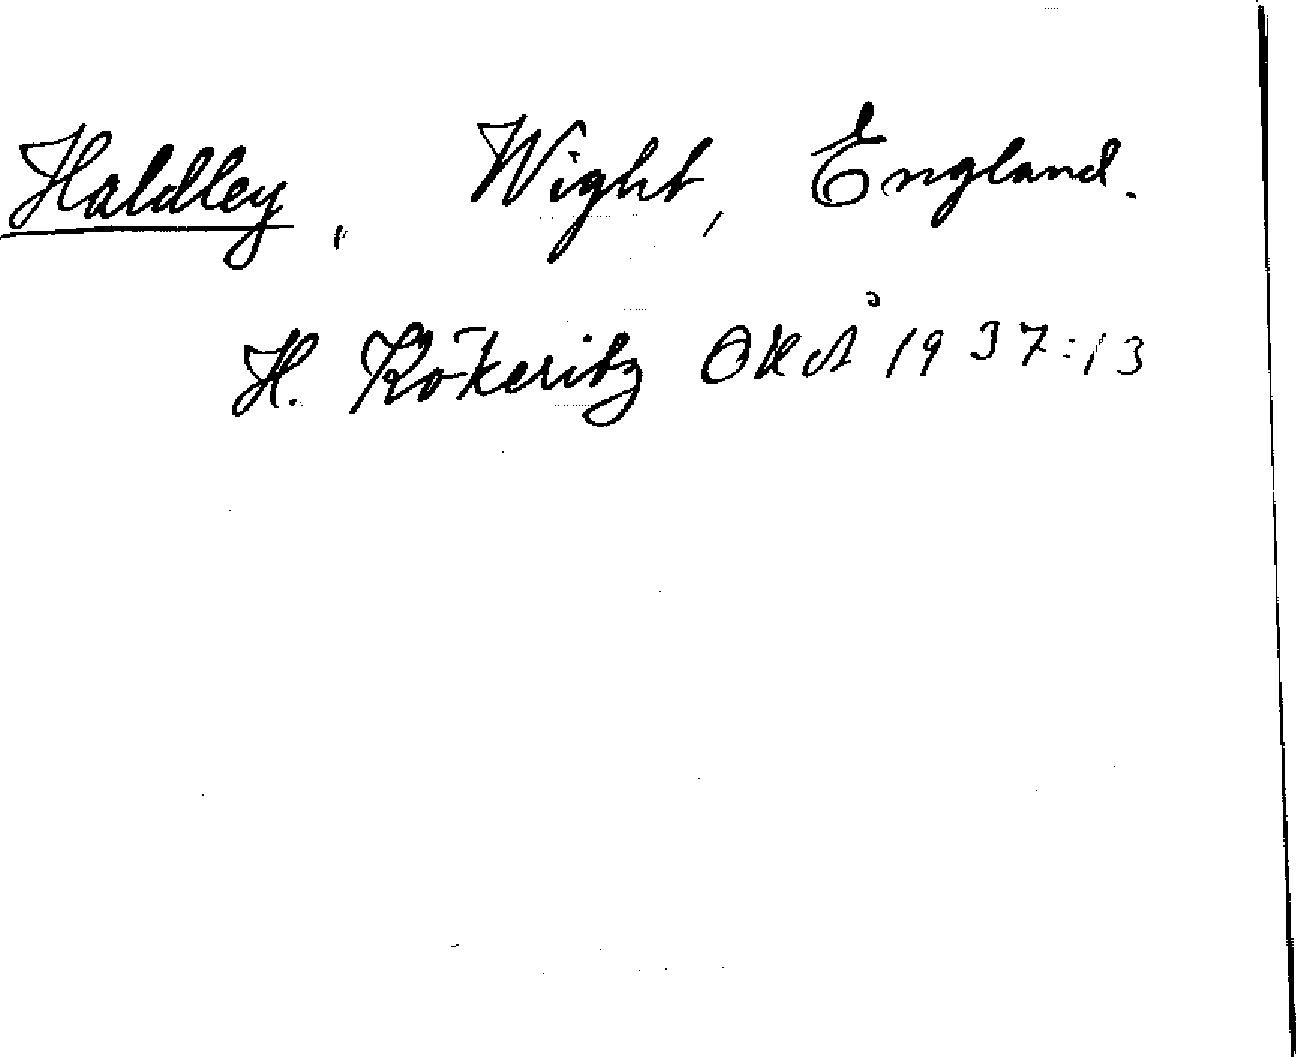 Haldley, Wight, England.
H. Kökeritz OKÅ 1937:13